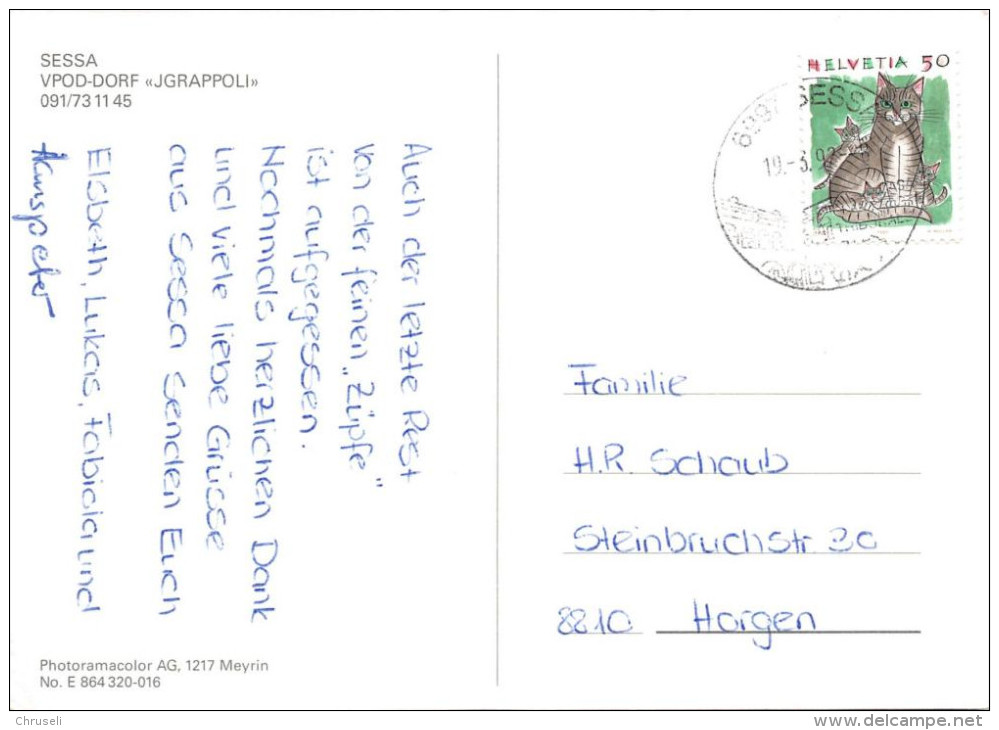 SESSA
VPOD-DORF «JGRAPPOLI»
091/73 11 45
Auch der letzte Rest
von der feinen „Züpfe"
ist aufgegessen.
Nochmals herzlichen Dank
und viele liebe Grüsse
aus Sessa senden Euch
Elsbeth, Lukas, Fabiola und
Hanspeter
HELVETIA 50
SESSA
19.-3.92
Familie
H.R. Schaub
Steinbruchstr. 20
8810 Horgen
Photoramacolor AG, 1217 Meyrin
No. E 864 320-016
Chruseli
www.delcampe.net